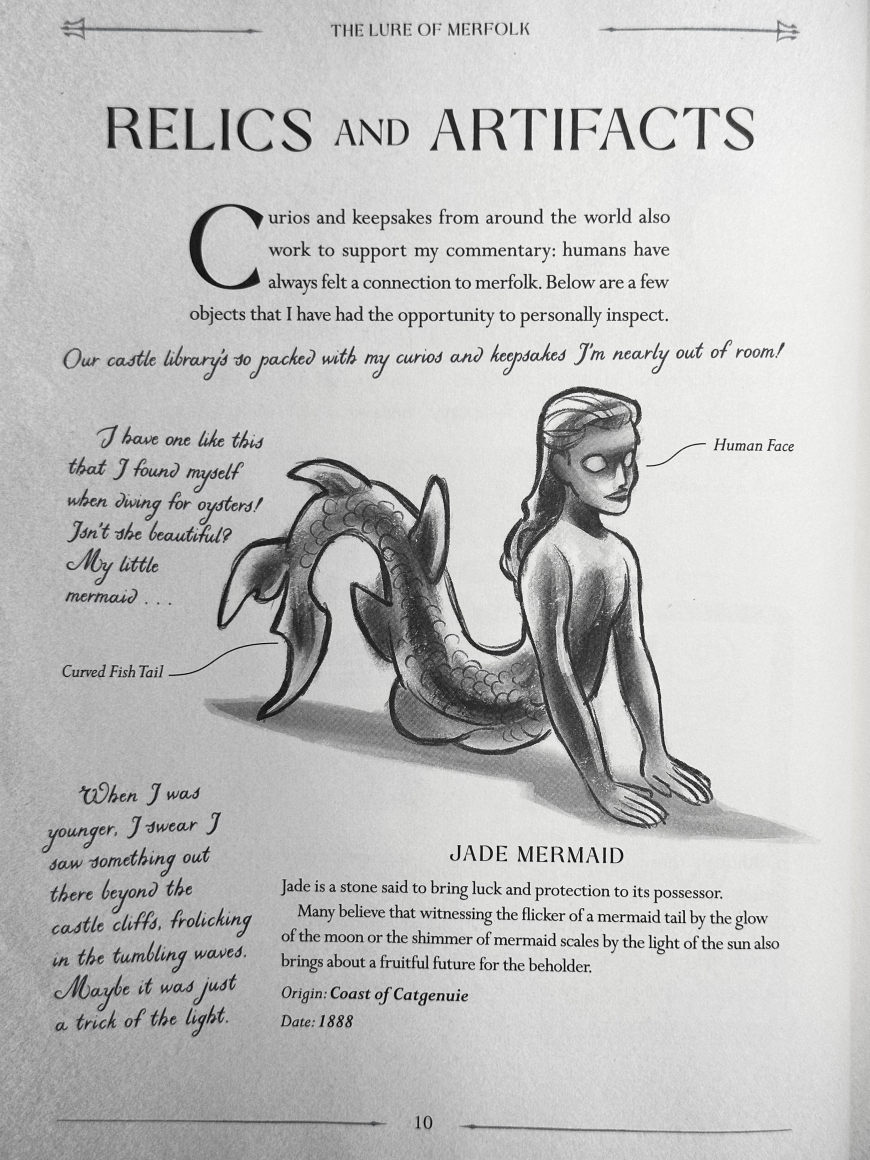 THE LURE OF MERFOLK
RELICS AND ARTIFACTS
Curios and keepsakes from around the world also
work to support my commentary: humans have
always felt a connection to merfolk. Below are a few
objects that I have had the opportunity to personally inspect.
Our castle library's so packed with my curios and keepsakes I'm nearly out of room!
Human Face
I have one like this
that I found myself
when diving for oysters!
Isn't she beautiful?
My little
mermaid . . .
Curved Fish Tail
When I was
younger, I swear I
saw something out
there beyond the
castle cliffs, frolicking
in the tumbling waves.
Maybe it was just
a trick of the light.
JADE MERMAID
Jade is a stone said to bring luck and protection to its possessor.
Many believe that witnessing the flicker of a mermaid tail by the glow
of the moon or the shimmer of mermaid scales by the light of the sun also
brings about a fruitful future for the beholder.
Origin: Coast of Catgenuie
Date: 1888
10